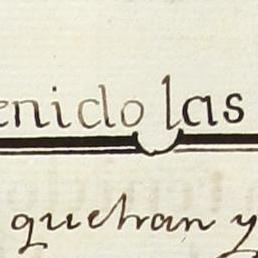 enido las
que han y